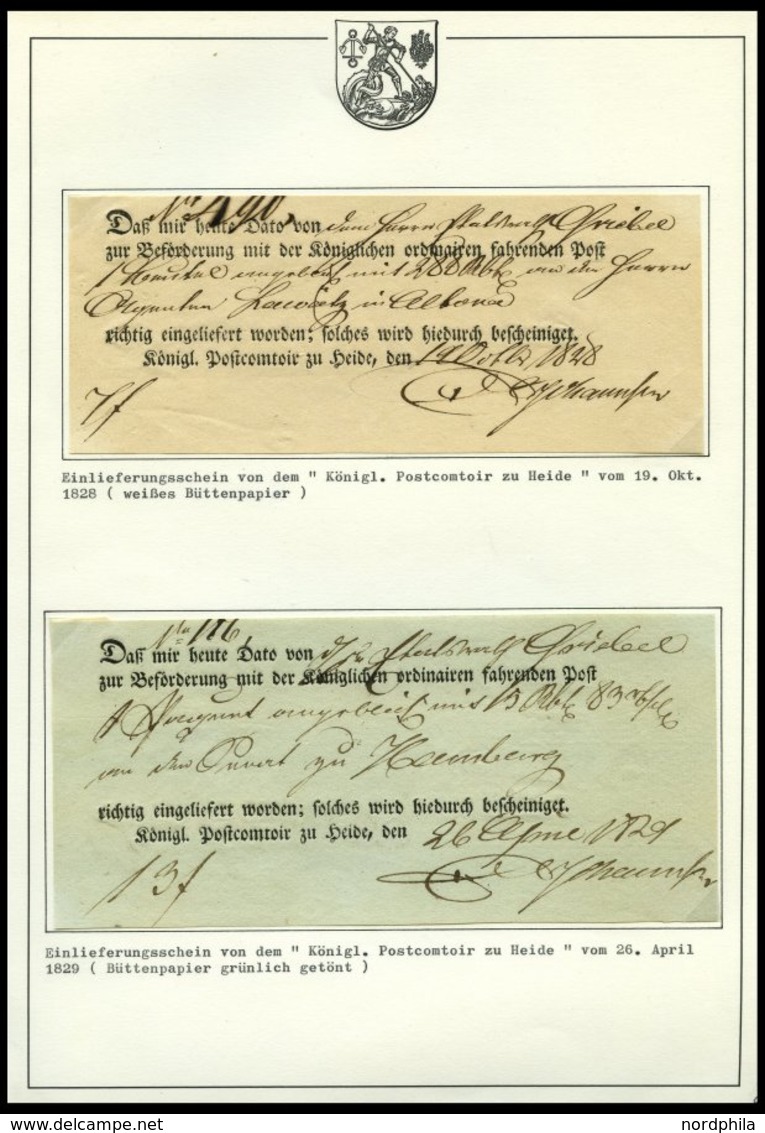 Daß mir heute Dato von dem Herrn Griebel
zur Beförderung mit der Königlichen ordinairen fahrenden Post
1 Beutel angeblich mit 288 Rbt an den Herrn
Agenten in Altona
richtig eingeliefert worden; solches wird hiedurch bescheiniget.
Königl. Postcomtoir zu Heide, den 19 Octbr 1828
7 f Johannsen
Einlieferungsschein von dem " Königl. Postcomtoir zu Heide " vom 19. Okt.
1828 ( weißes Büttenpapier )
No 116
Daß mir heute Dato von Griebel
zur Beförderung mit der Königlichen ordinairen fahrenden Post
angeblich mit 15 Rbt 83
an den zu Hamburg
richtig eingeliefert worden; solches wird hiedurch bescheiniget.
Königl. Postcomtoir zu Heide, den 26 April 1829
13 f Johannsen
Einlieferungsschein von dem " Königl. Postcomtoir zu Heide " vom 26. April
1829 ( Büttenpapier grünlich getönt )
nordphila